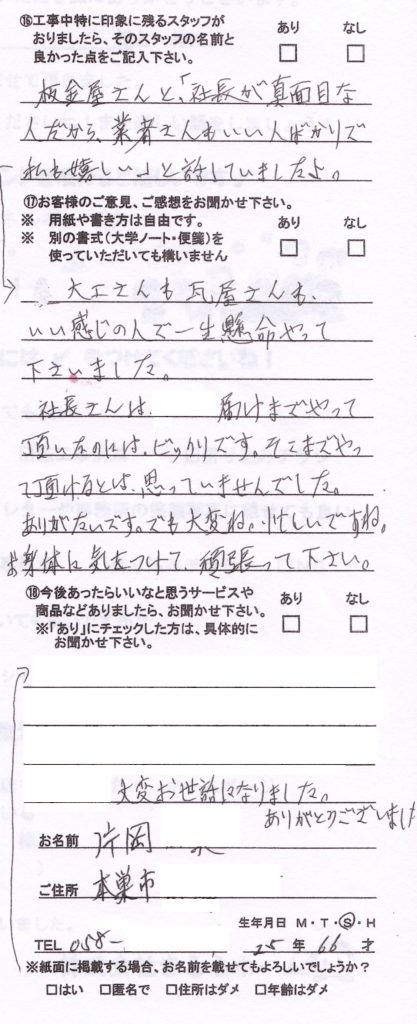 ⑯工事中特に印象に残るスタッフが
おりましたら、そのスタッフの名前と
良かった点をご記入下さい。
あり
なし
板金屋さんと、「社長が真面目な
人だから、業者さんもいい人ばかりで
私も嬉しい」と話していましたよ。
⑰お客様のご意見、ご感想をお聞かせ下さい。
※ 用紙や書き方は自由です。
※ 別の書式(大学ノート・便箋)を
使っていただいても構いません
あり
なし
大工さんも瓦屋さんも、
いい感じの人で一生懸命やって
下さいました。
社長さんは 届けまでやって
頂いたのには、ビックリです。そこまでやっ
て頂けるとは、思っていませんでした。
ありがたいです。でも大変ね。忙しいですね。
お身体に気をつけて頑張って下さい。
⑱今後あったらいいなと思うサービスや
商品などありましたら、お聞かせ下さい。
※「あり」にチェックした方は、具体的に
お聞かせ下さい。
あり
なし
大変お世話になりました。
ありがとうございました
お名前 片岡
ご住所 本巣市
生年月日 M・T・S・H
TEL 058- 25年 66才
※紙面に掲載する場合、お名前を載せてもよろしいでしょうか?
□はい □匿名で □住所はダメ □年齢はダメ